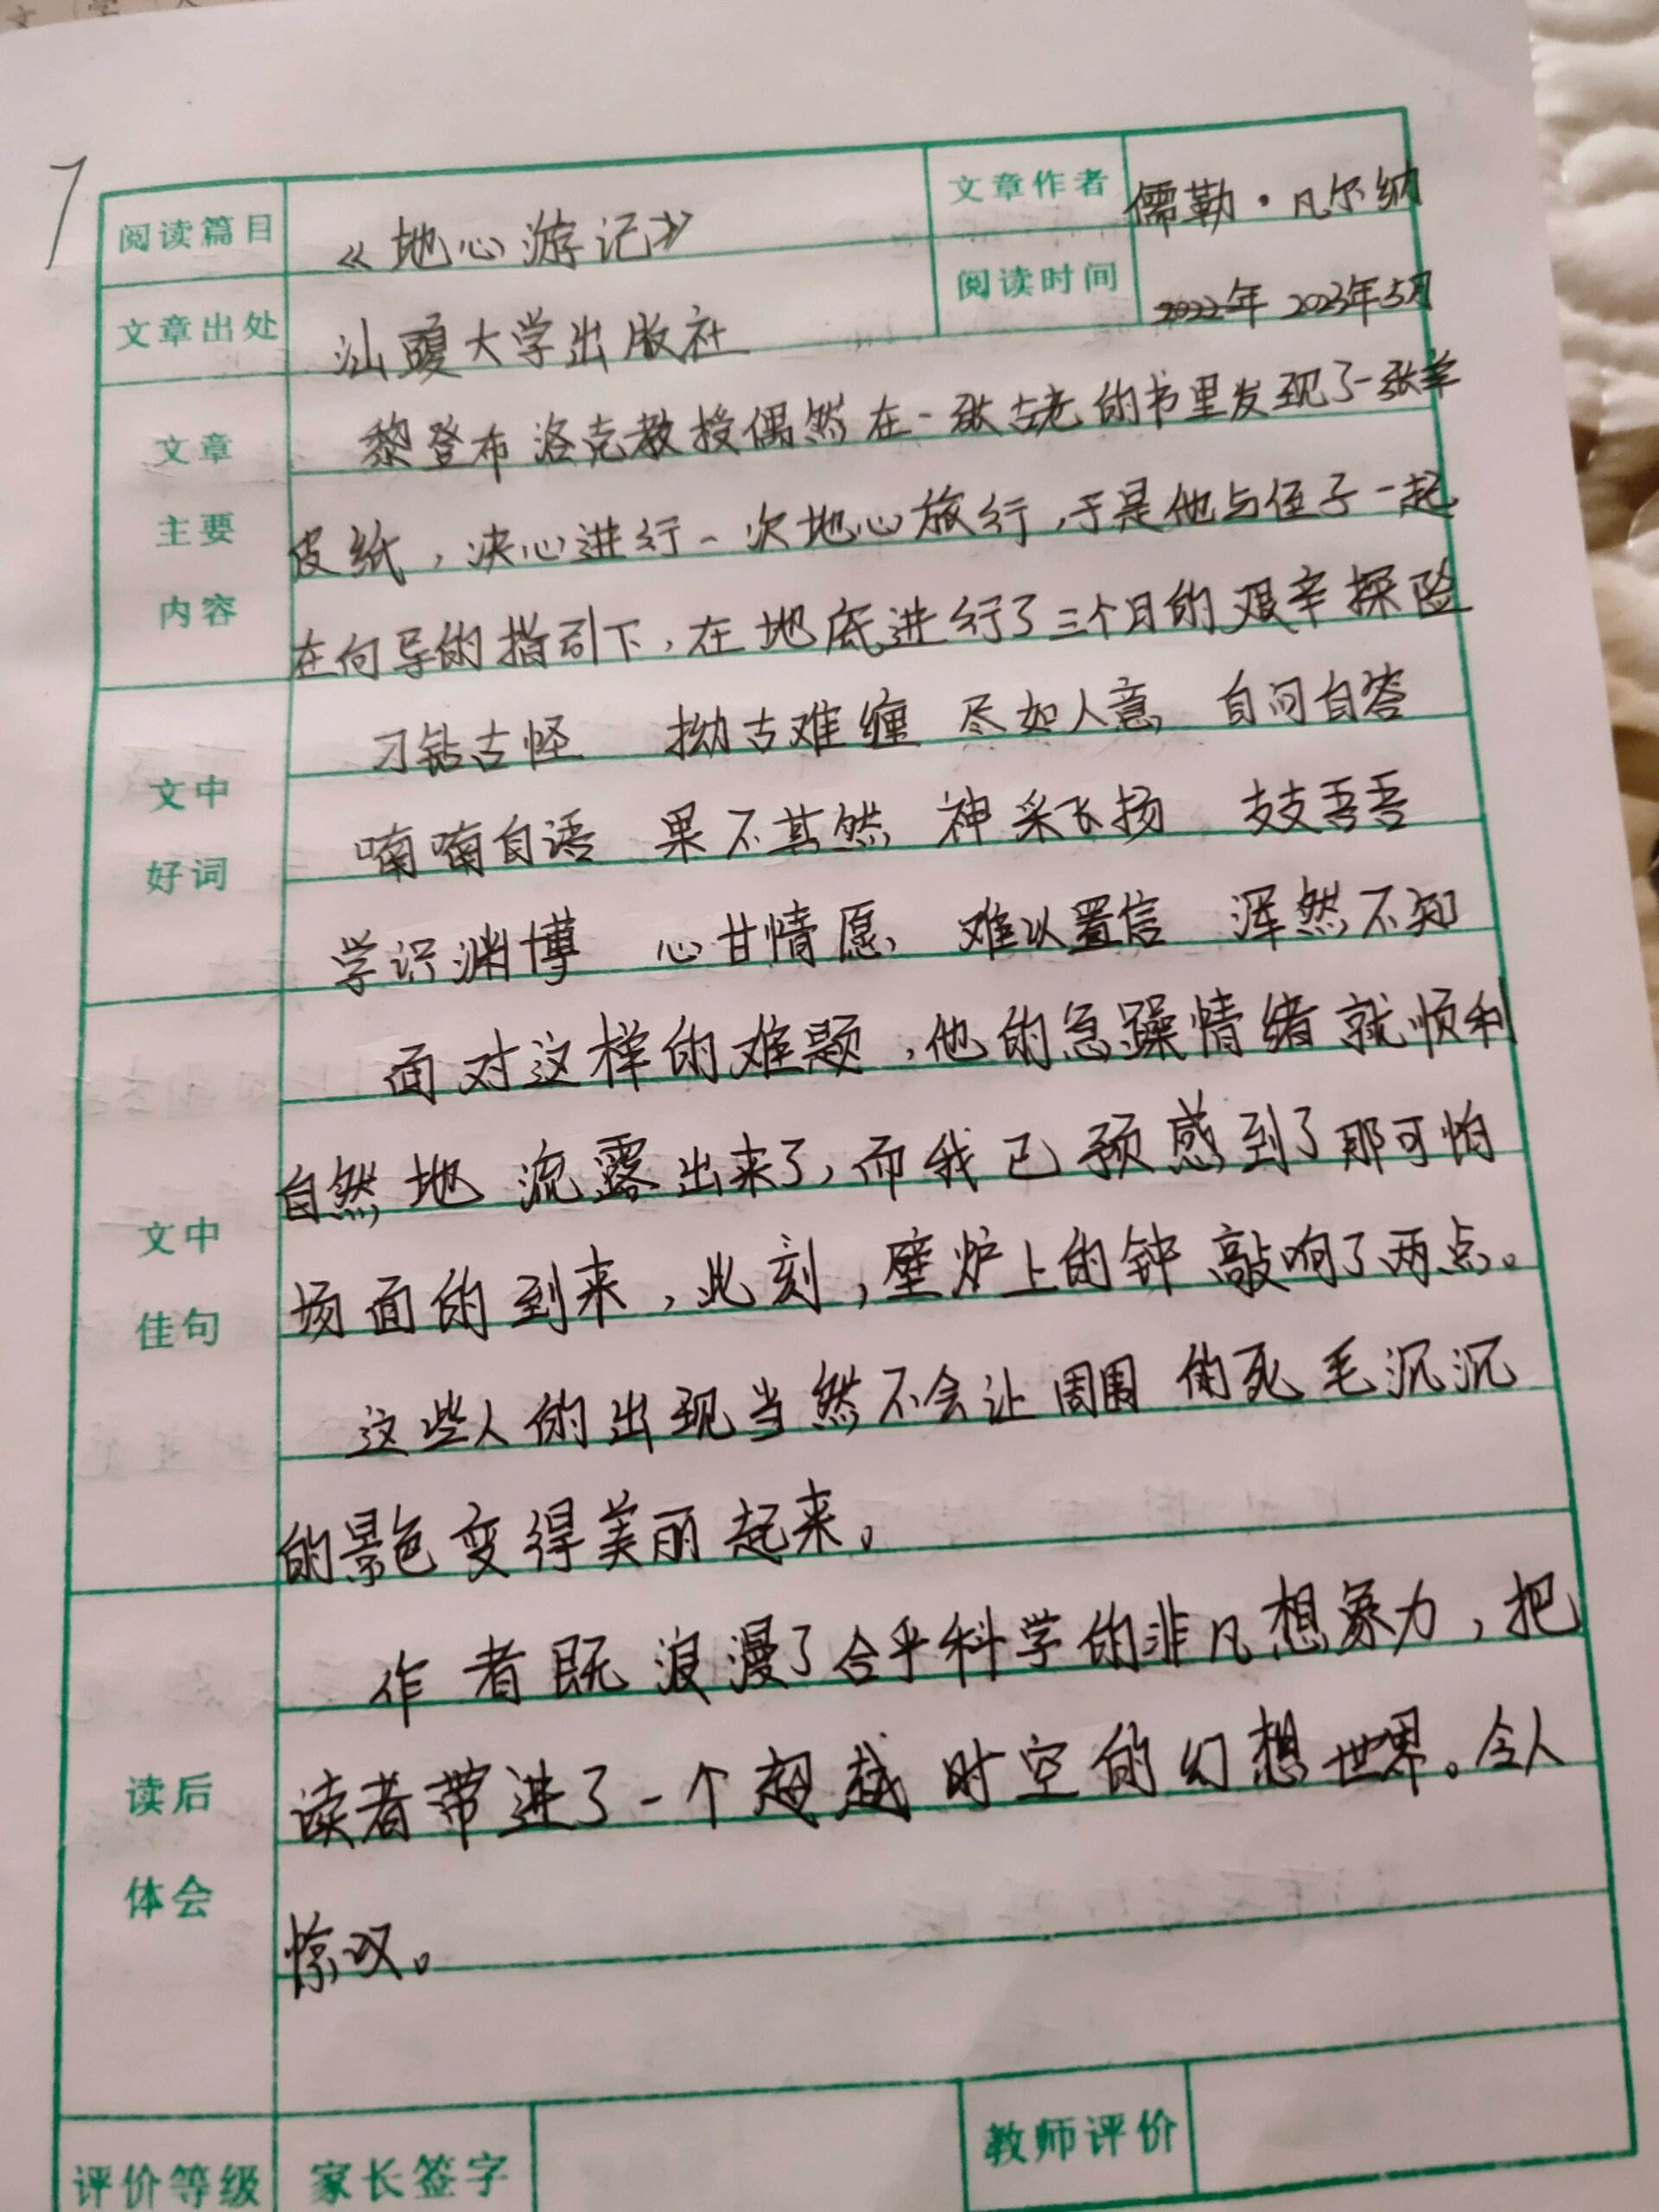 7
阅读篇目 《地心游记》 文章作者 儒勒·凡尔纳
文章出处 汕头大学出版社 阅读时间 2022年 2023年5月
黎登布洛克教授偶然在一张古老的书里发现了一张羊
文章
主要 皮纸，决心进行一次地心旅行，于是他与侄子一起
内容 在向导的指引下，在地底进行了三个月的艰辛探险
刁钻古怪 拗古难缠 尽如人意 自问自答
文中 喃喃自语 果不其然 神采飞扬 支支吾吾
好词 学识渊博 心甘情愿 难以置信 浑然不知
面对这样的难题，他的急躁情绪就顺利
自然地流露出来了，而我已预感到了那可怕
文中 场面的到来，此刻，壁炉上的钟敲响了两点。
佳句 这些人的出现当然不会让周围的死毛沉沉
的景色变得美丽起来。
作者既浪漫了合乎科学的非凡想象力，把
读后 读者带进了一个超越时空的幻想世界。令人
体会 惊叹。
评价等级 家长签字 教师评价